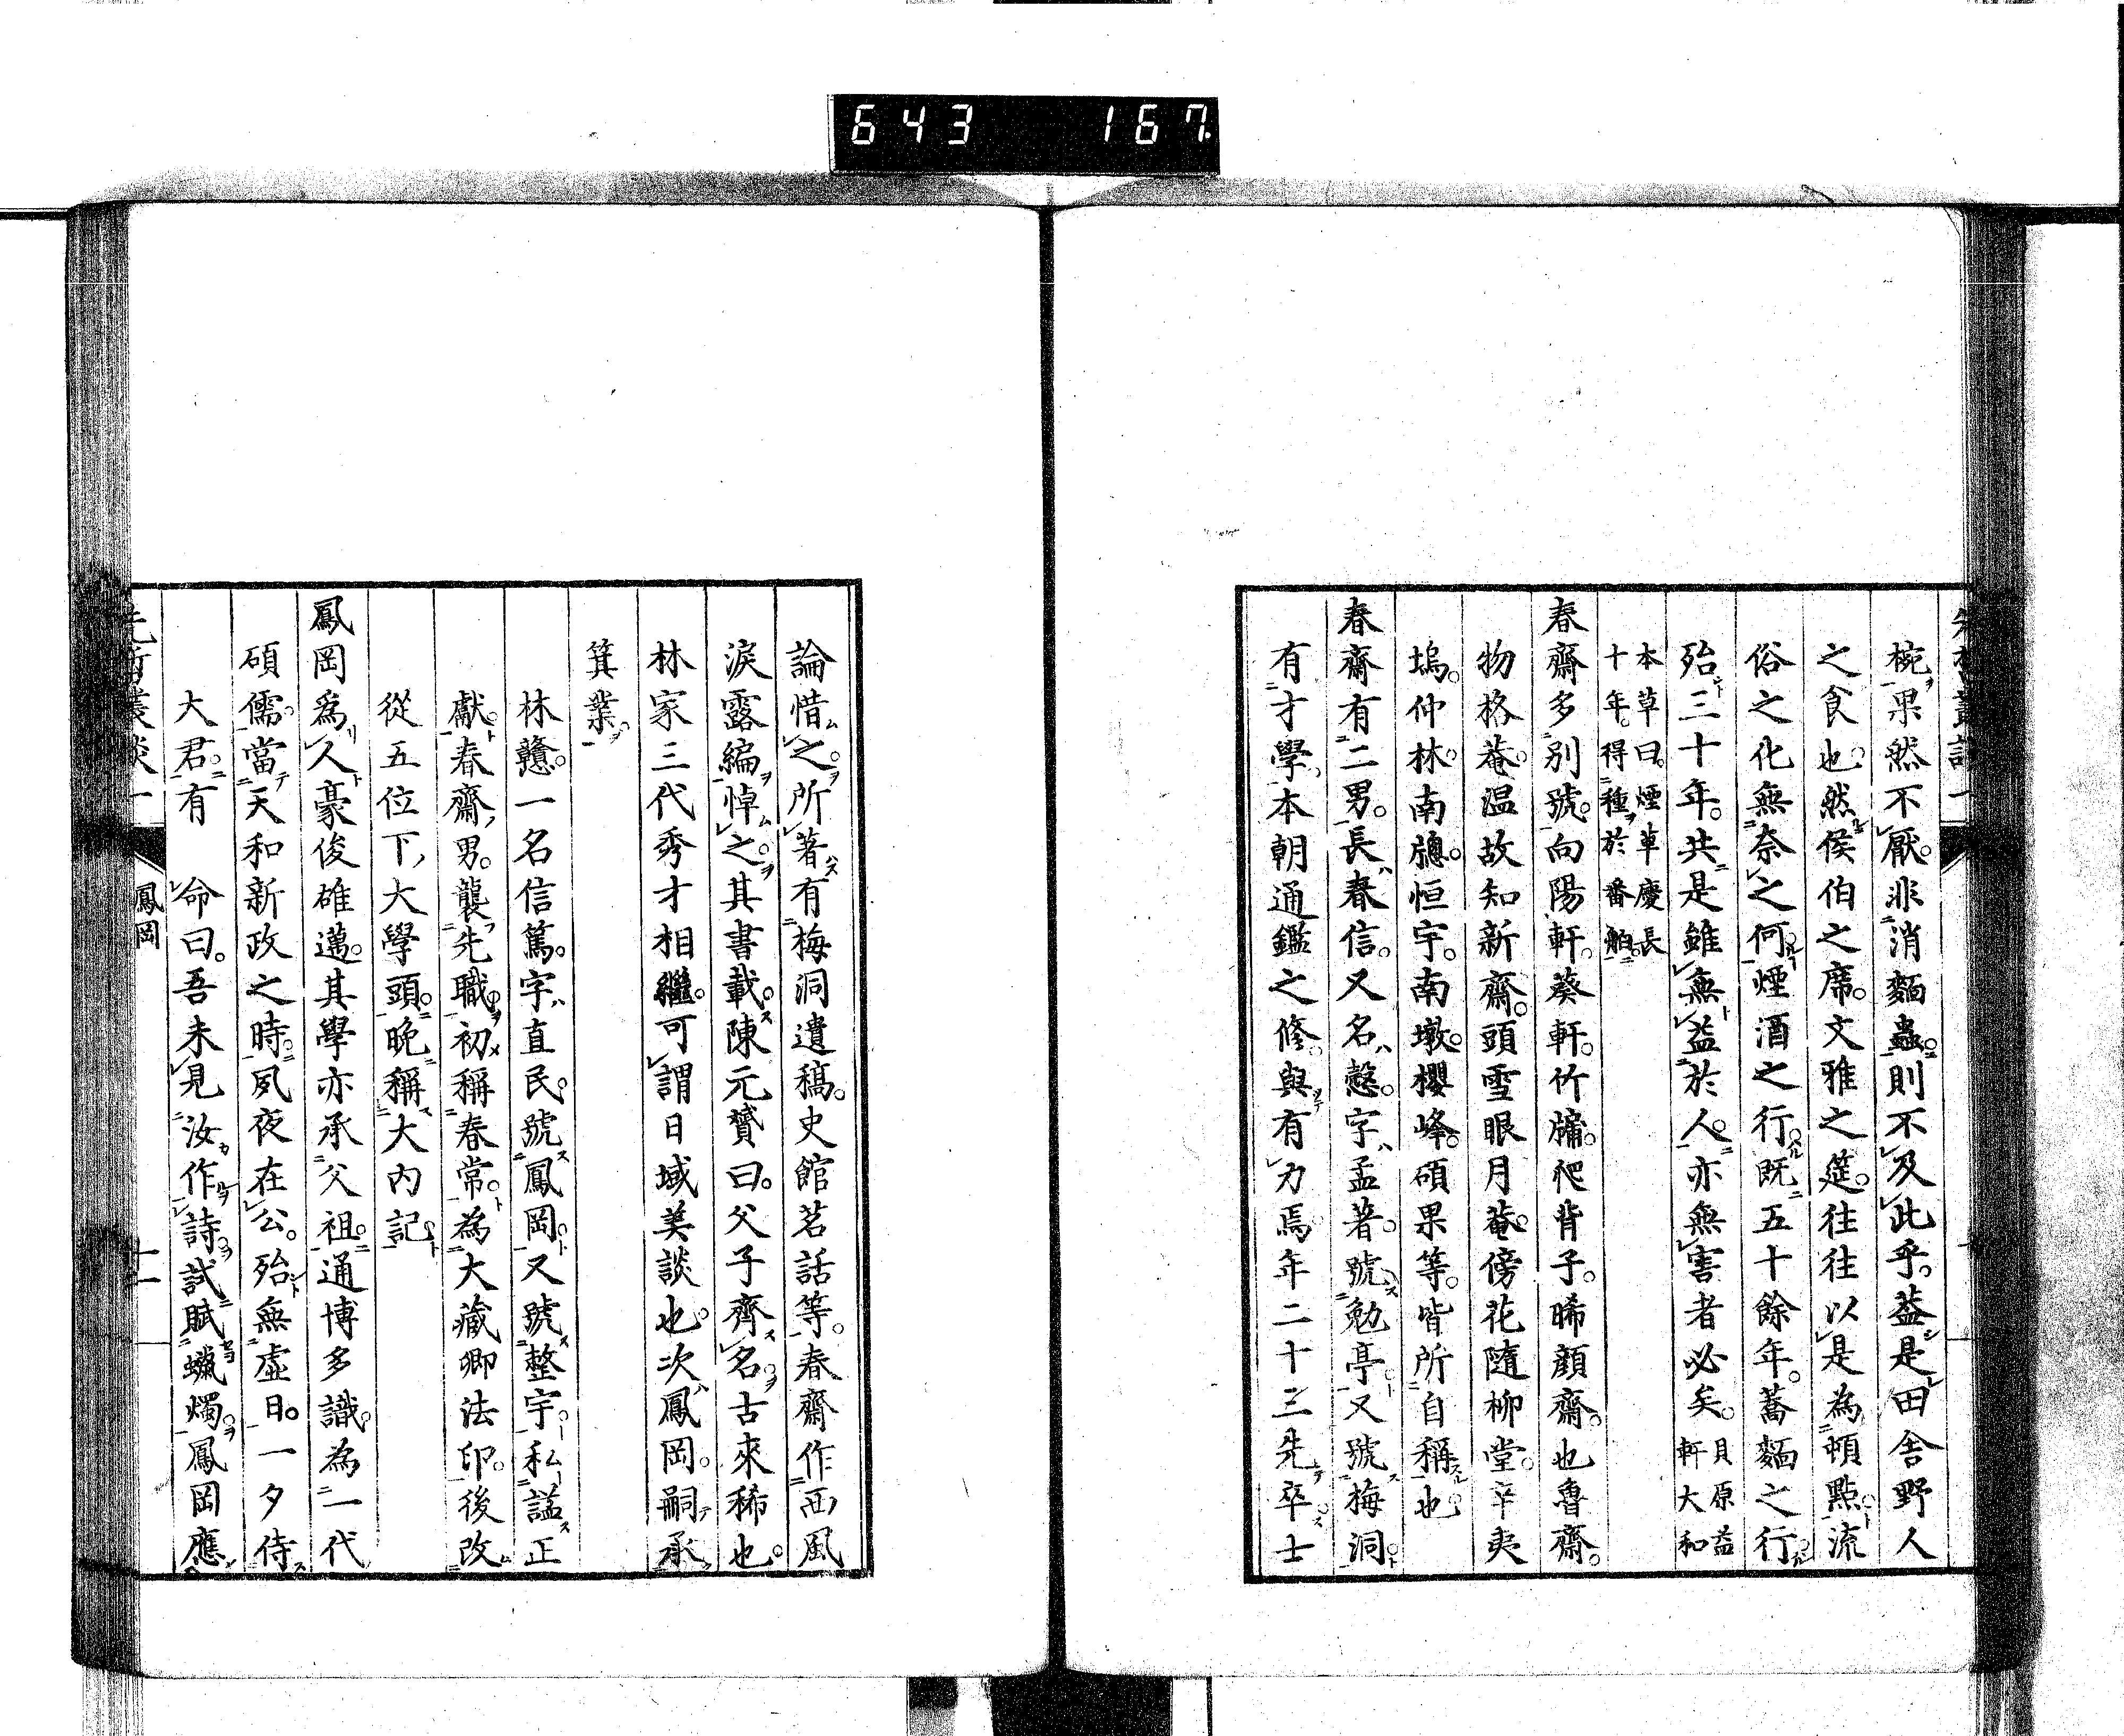 643 167
椀果然不厭非消麵蟲則不及此乎蓋是田舎野人
之食也然侯伯之席文雅之筵往往以是為頓點流
俗之化無奈之何煙酒之行既五十餘年蕎麵之行
殆三十年共是雖無益於人亦無害者必矣貝原益軒大和
本草曰煙草慶長
十年得種於番舶
春齋多別號向陽軒葵軒竹牖爬背子晞顔齋也魯齋
物格菴温故知新齋頭雪眼月菴傍花隨柳堂辛夷
塢仲林南牕恒宇南墩櫻峰碩果等皆所自稱也
春齋有二男長春信又名愨字孟著號勉亭又號梅洞
有才學本朝通鑑之修與有力焉年二十三先卒士
論惜之所著有梅洞遺稿史館茗話等春齋作西風
淚露編悼之其書載陳元贇曰父子齊名古來稀也
林家三代秀才相繼可謂日域美談也次鳳岡嗣承
箕業
林戇一名信篤字直民號鳳岡又號整宇私謚正
獻春齋男襲先職初稱春常為大藏卿法印後改
從五位下大學頭晩稱大內記
鳳岡爲人豪俊雄邁其學亦承父祖通博多識為一代
碩儒當天和新政之時夙夜在公殆無虚日一夕侍
大君有 命曰吾未見汝作詩試賦蠟燭鳳岡應
先哲叢談一 鳳岡 十一